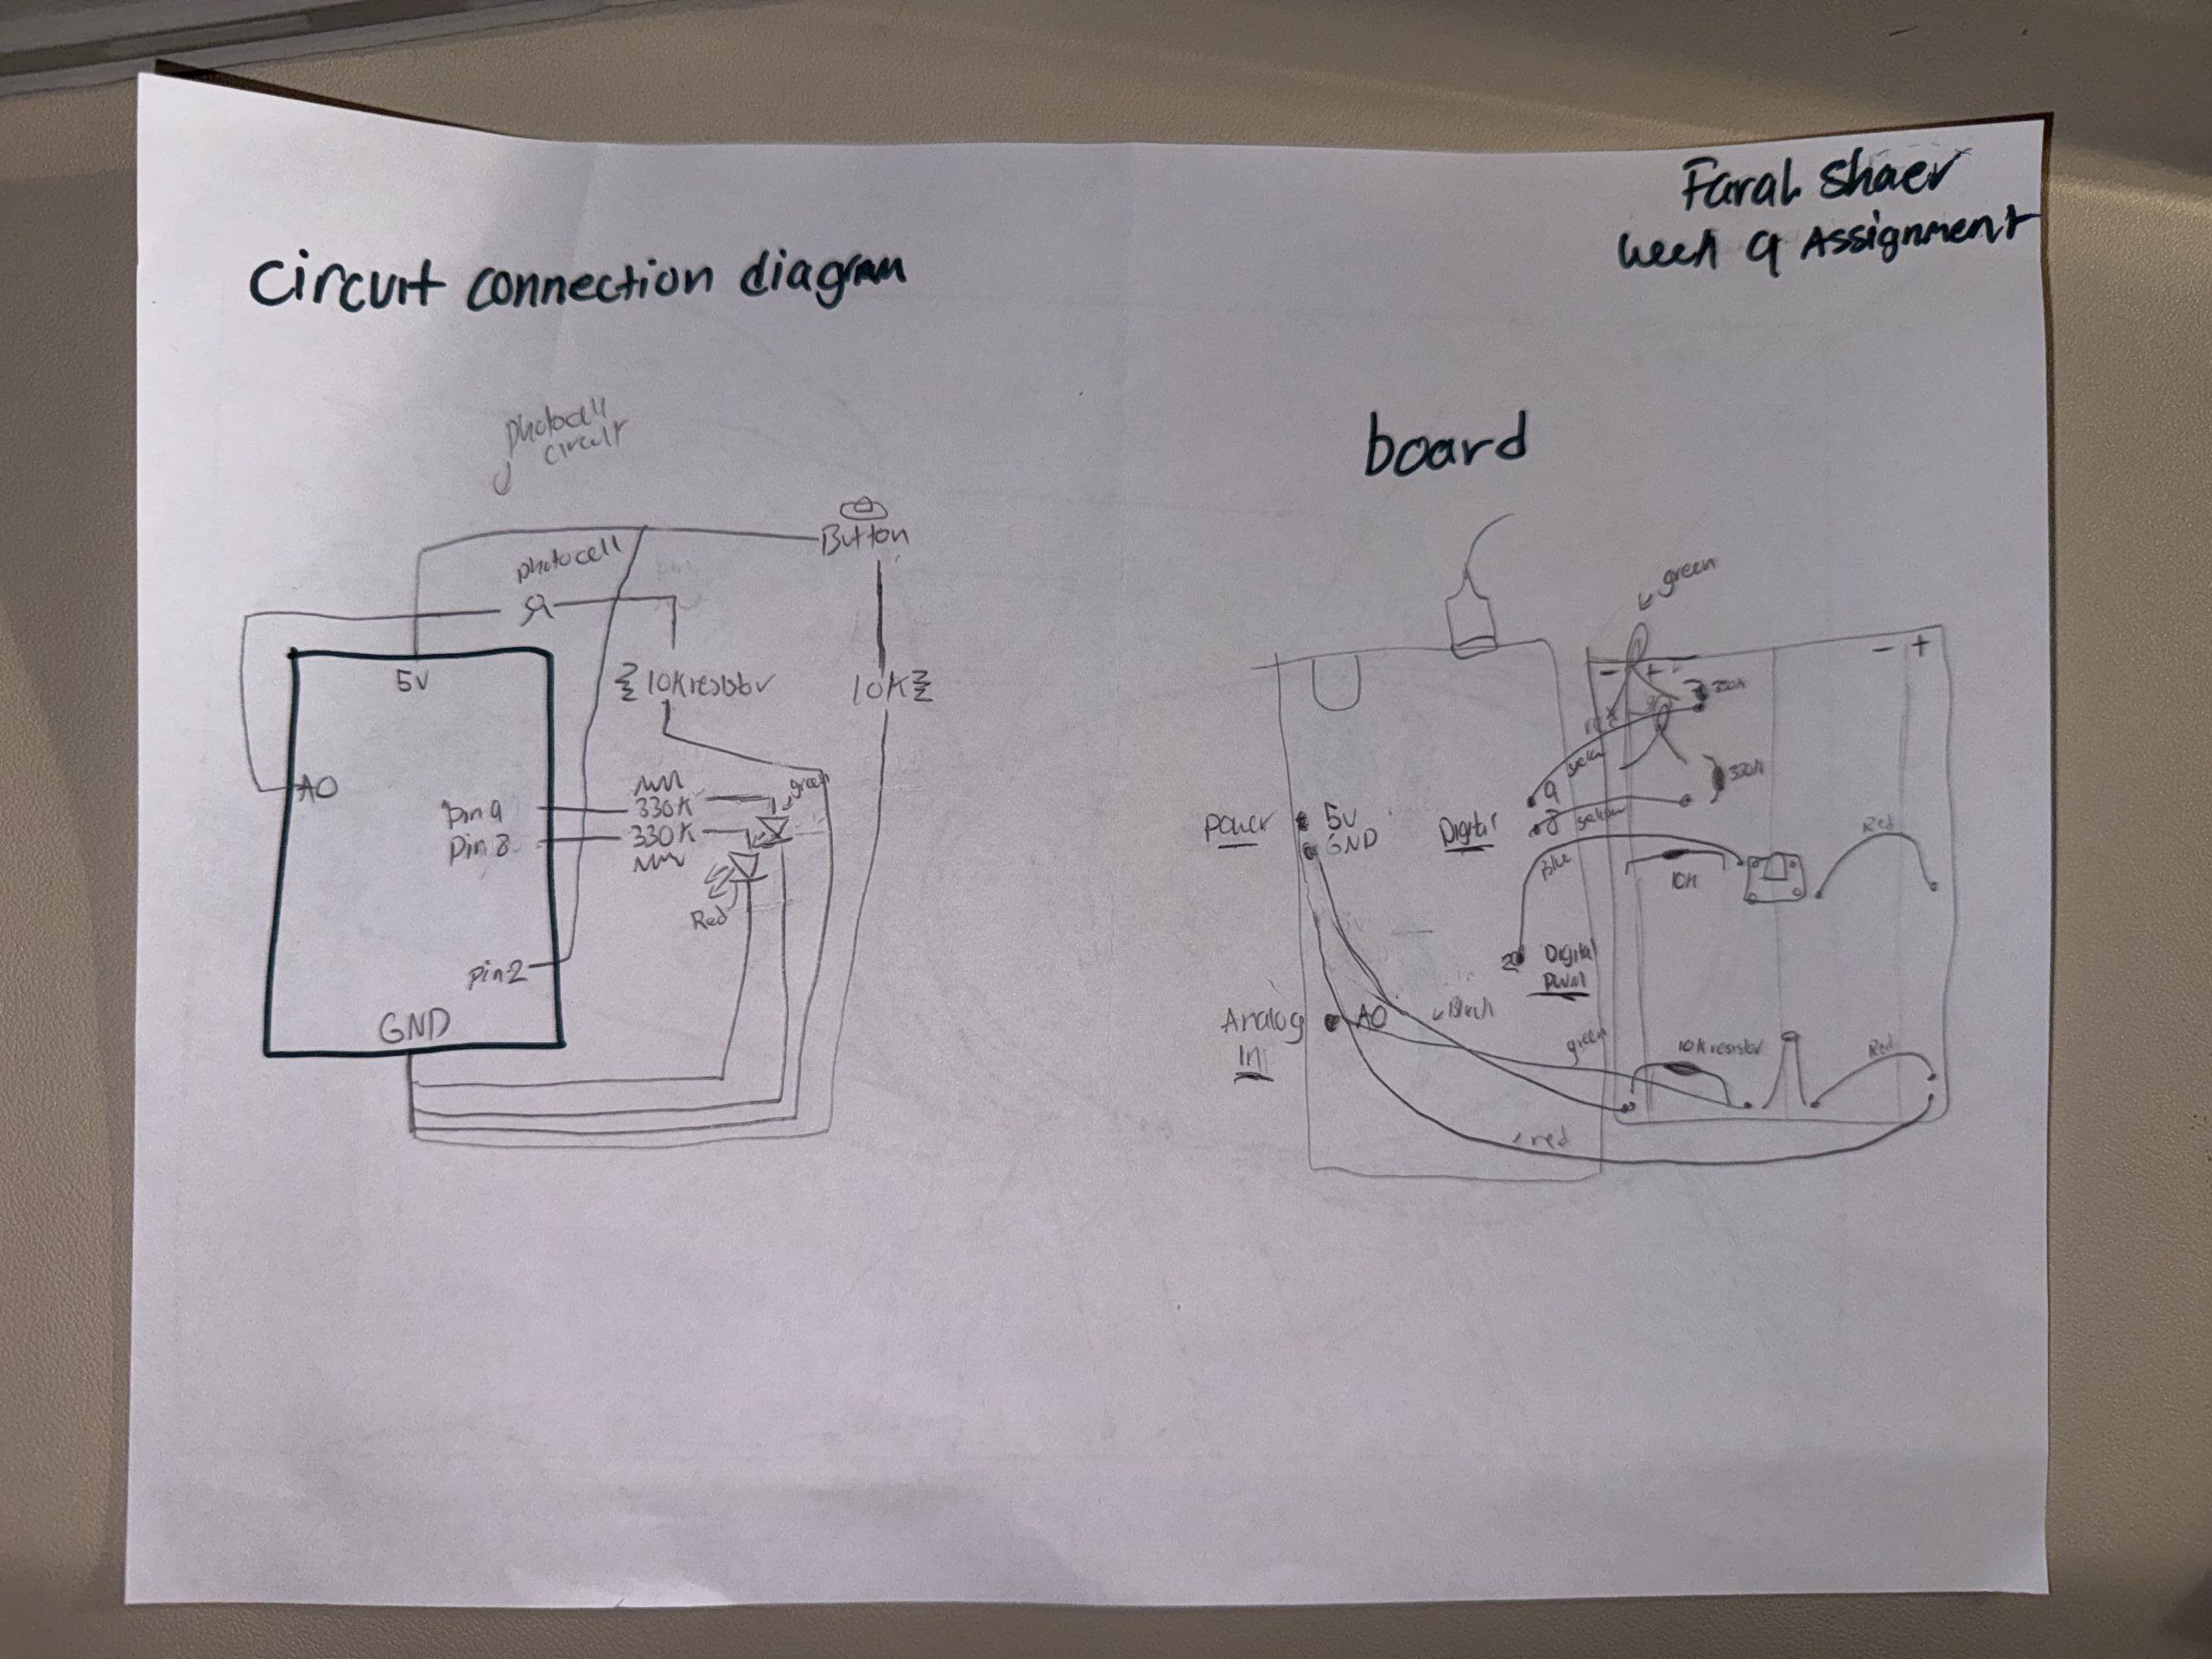 Farah Shaer
Week 9 Assignment
Circuit connection diagram
photocell
circuit
photocell
Button
5V
10K resistor
10K
A0
green
pin 9
330K
pin 8
330K
Red
pin 2
GND
board
green
- +
- +
330K
yellow
9
330K
Power
5V
GND
Digital
8
yellow
Red
Blue
10K
2
Digital
PWM
Analog
In
A0
Black
green
10K resistor
Red
red